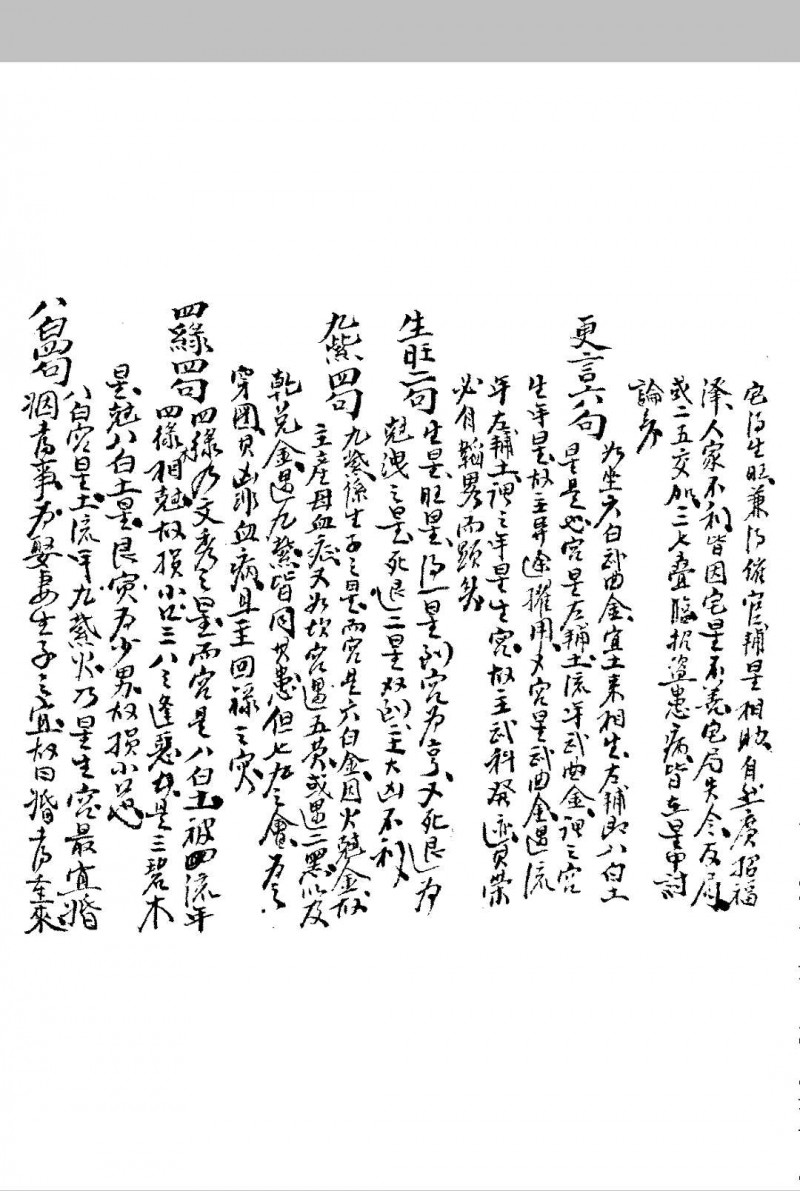 宅得生旺兼得催官輔星相助自然廣招福
澤人家不利皆因宅星不善宅局失令反局
或二五交加三七叠臨招盜患病皆在星中討
論多
更言六句
如坐六白武曲金宜土來相生左輔即八白土
星是也宮是左輔土流年武曲金謂之宮
生年星故主異途擢用又宮星武曲金遇流
年左輔土謂之年星生宮故主武科發跡貝榮
必有韜畧而顯矣
生旺二句生星旺星得一星到宮為亨又死退為
尅洩之星死退二星双到主大凶不利
九紫四句九紫係生子之星而宮是六白金因火尅金故
主産母血症又如坎宮遇五黄或遇二黑以及
乾兌金遇九紫皆同其患但七九之會為之
穿圖貝凶非血病且主回祿之灾
四綠四句四綠乃文秀之星而宮是八白土被四流年
四綠相尅故損小口三八之逢惡者是三碧木
星尅八白土星艮寅為少男故損小也
八白四句
八白宮是土流年九紫火乃星生宮最宜婚
姻喜事為娶妻生子之宜故曰婚喜重來